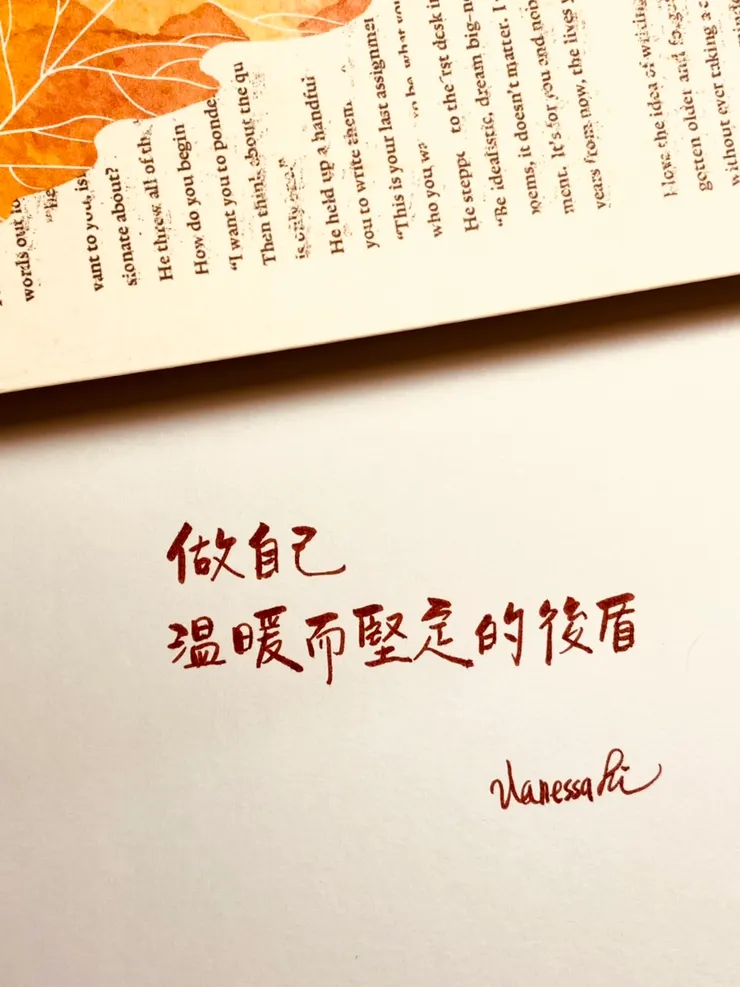 words out lo
vant to you, is
sionate about?
He threw all of the
How do you begin
"I want you to ponde
Then think about the qu
is only one."
He held up a handful
you to write them.
"This is your last assignmen
who you wa to be what you
He stepp to the rst desk in
"Be idealistic, dream big-n
poems, it doesn't matter. I
ment. It's for you and nob
years from now, the lives y
I love the idea of writing
gotten older and forge
without ever taking a c
做自己
温暖而堅定的後盾
Vanessa Li